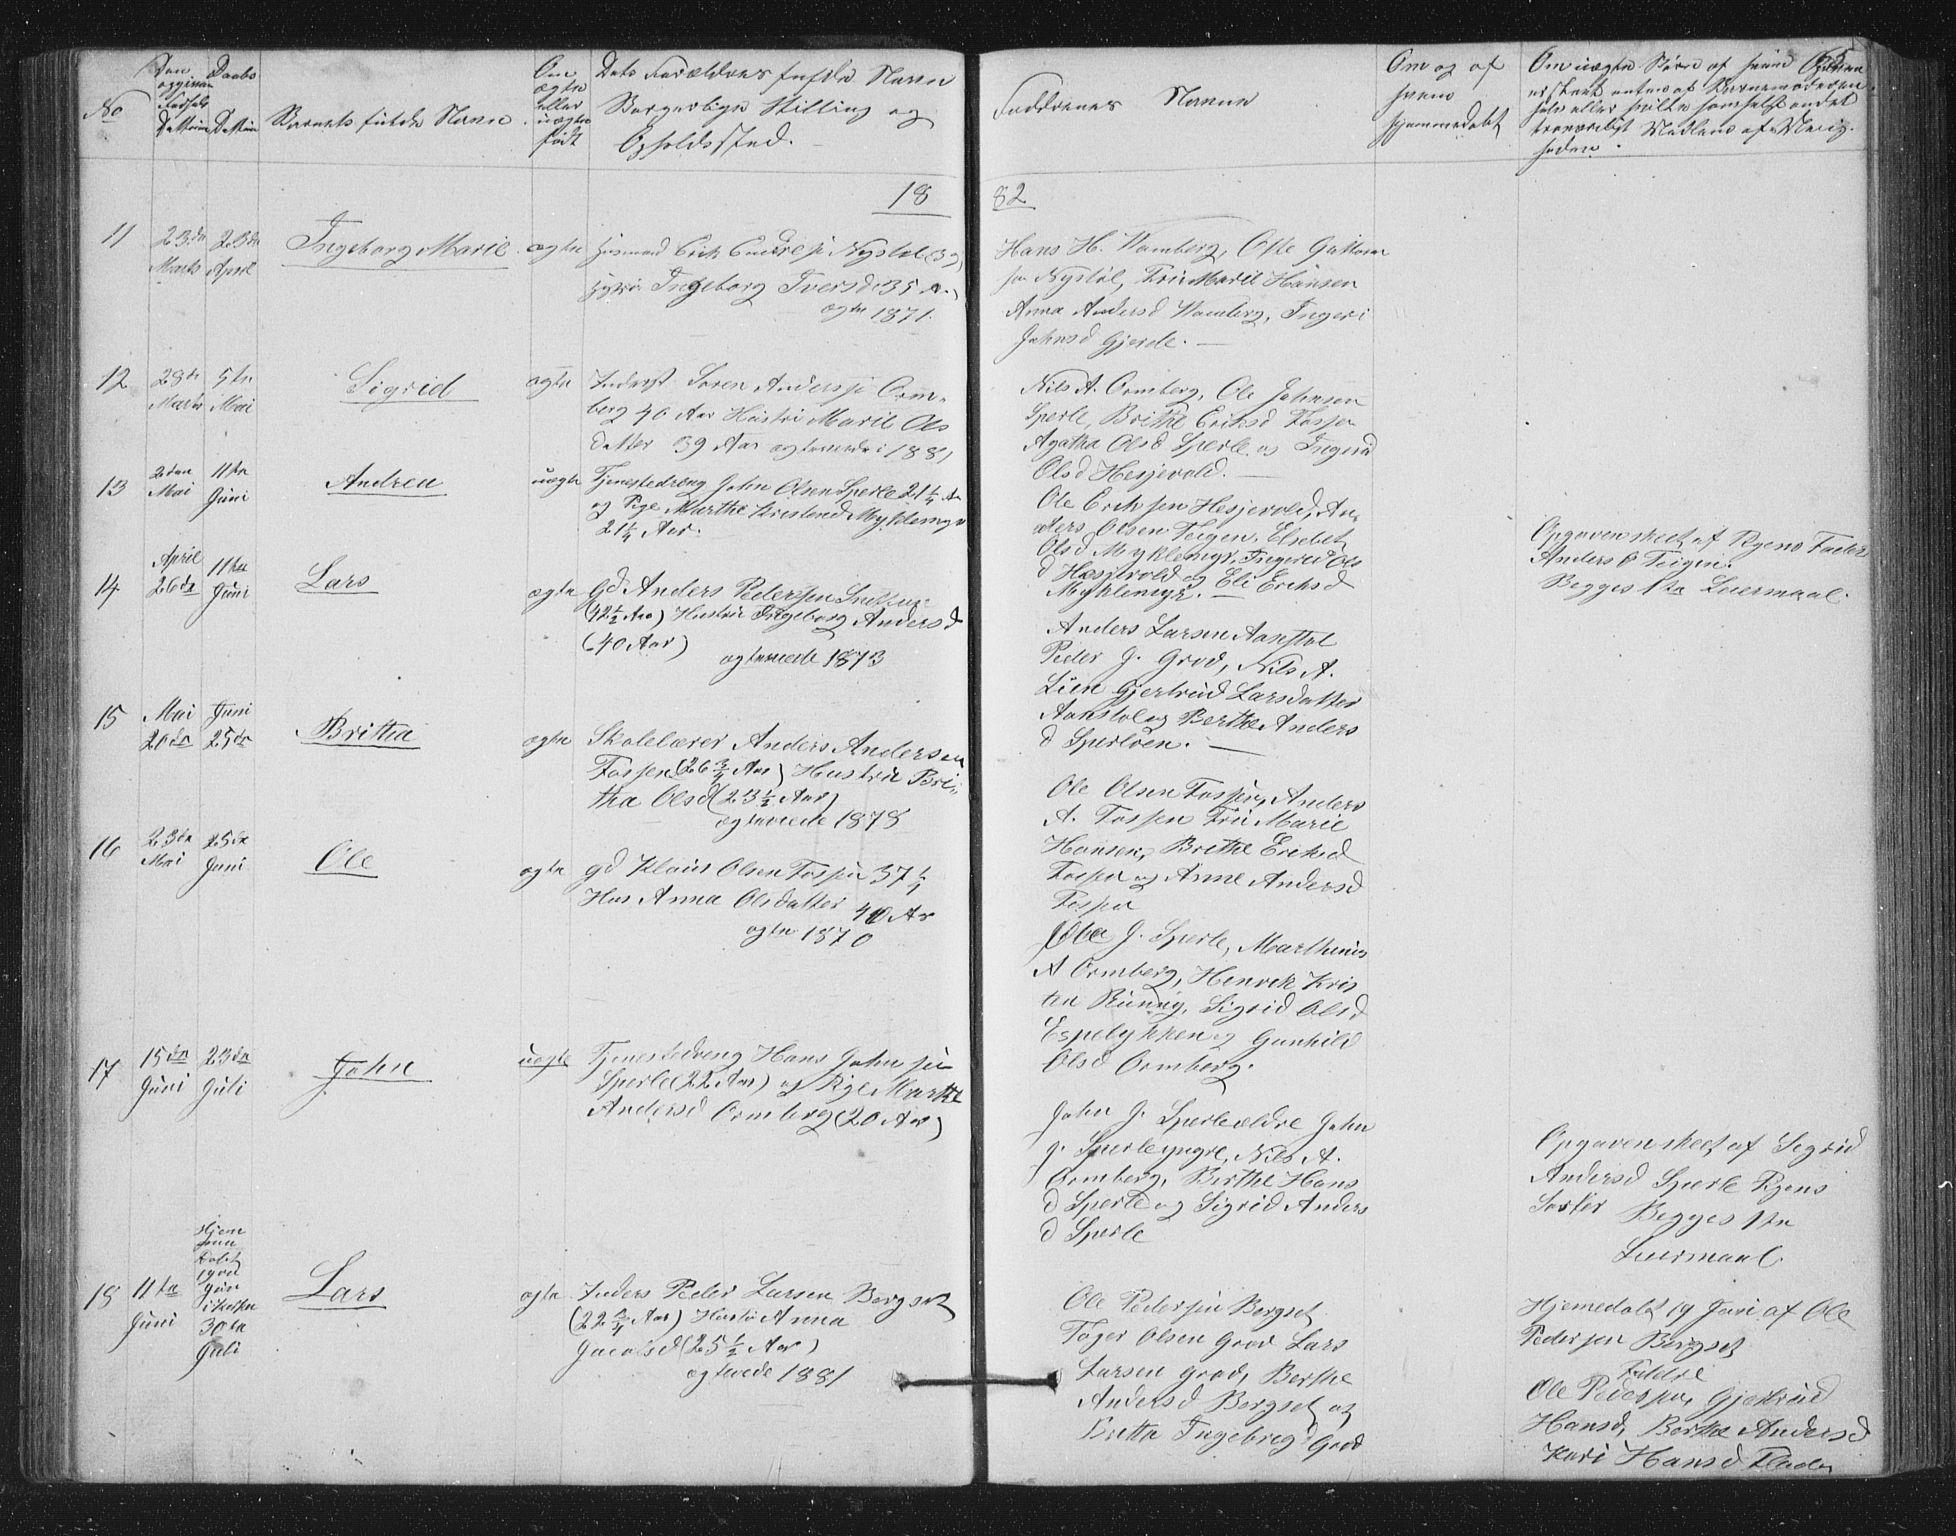 65
No
Den opgivne Fødsels Dattum
Daabs Dattum
Barnets fulde Navn
Om ægte eller uægte født
Dets Forældres fulde Navn
Borgerlige Stilling og
Opholdssted.
Faddrenes Navne
Om og af
hvem
hjemmedøbt
18 82
11
23de Marts
23de April
Ingeborg Marie
ægte
Erik
Nystøl (39)
Ingeborg Iversd 35 A.
ægte 1871.
Hans H. Vamberg, Ole Guttorm
sen Nystøl, Fru Marie Hansen
Anna Andersd Vamberg, Ingeri
Johnsd Gjerde. —
12
28de Marts
5te Mai
Sigrid
ægte
Inderst Søren Anderssen Orm-
berg 40 Aar Hustru Marie Ols
datter 39 Aar ægteviede i 1881
Nils A. Ormberg, Ole Johnsen
Sperle, Brithe Eriksd Fossen
Agatha Olsd Sperle og Ingerid
Olsd Hesjevold. —
13
2den Mai
11te Juni
Andrea
uægte
Tjenestedreng John Olsen Sperle 21 1/4 Aar
og Pige Marthe Kristensd Myklemyr
21 1/4 Aar.
Ole Eriksen Hesjevold, An
ders Olsen Teigen, Elsebet
Olsd Myklemyr, Ingerid Ols
d Hesjevold og Eli Eriksd
Myklemyr. —
Opgaven skeet af Pigens Fader
Anders O Teigen.
Begges 1te Leiermaal.
14
April 26de
11te Juni
Lars
ægte
Gd Anders Pedersen
(42 1/2 Aar) Hustru Ingeborg Andersd
(40 Aar)
ægteviede 1873
Anders Larsen Aanstøl
Peder J. Grov, Nils A.
Lien Gjertrud Larsdatter
Aanstøl og Berthe Anders
d Sperløen. —
15
Mai 20de
Juni 25de
Britha
ægte
Skolelærer Anders Andersen
Fossen (26 3/4 Aar) Hustru Bri-
tha Olsd (23 1/2 Aar)
ægteviede 1878
Ole Olsen Fossen, Anders
A. Fossen Fru Marie
Hansen, Brithe Eriksd
Fossen og Anne Andersd
Fossen
16
23de Mai
25de Juni
Ole
ægte
Gd Klaus Olsen Fossen 37 1/4
Hus Anna Olsdatter 40 Aar
ægte 1870
Ole J. Sperle, Marthinus
A Ormberg, Henrik Kris
ten Sigrid Olsd
Espelykken og Gunhild
Olsd Ormberg.
17
15de Juni
23de Juli
John
uægte
Tjenestedreng Hans Johnsen
Sperle (22 Aar) og Pige Marthe
Andersd Ormberg (20 Aar)
John J. Sperle ældre John
J. Sperle yngre, Nils A.
Ormberg, Berthe Hans
d Sperle og Sigrid Anders
d Sperle
Opgaven skeet af Sigrid
Andersd Sperle Pigens
Søster Begges 1te
Leiermaal
18
11te Juni
Hjem
døbt
19de
Juni
i Kirken
30te
Juli
Lars
ægte
Inders Peder Larsen Bergset
(22 3/4 Aar) Hustru Anna
Jacobsd (25 1/2 Aar)
ægteviede 1881
Ole Pedersen Bergset
Tøger Olsen Grov Lars
Larsen Grov, Berthe
Andersd Bergset og
Britta Ingebrigd Grov
Hjemedøbt 19 Juni af Ole
Pedersen Bergset
Faddre
Ole Pedersen, Gjertrud
Hansd, Berthe Andersd
Kari Hansd